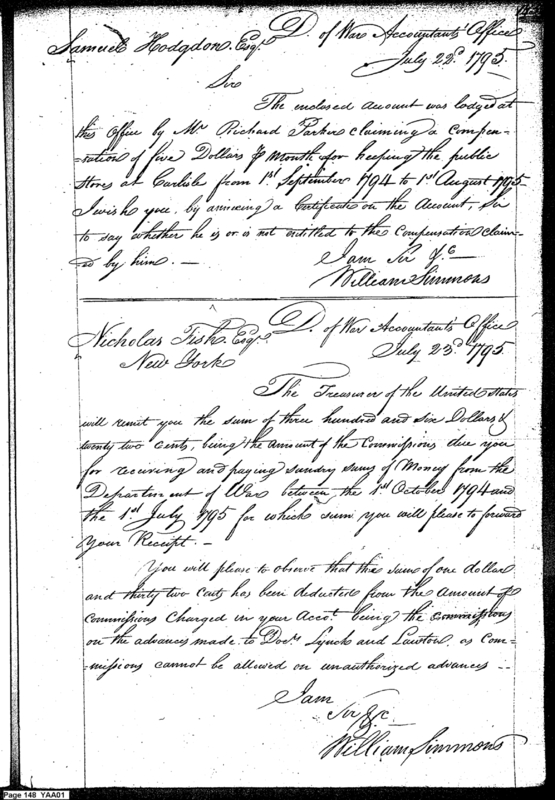 Samuel Hodgdon, Esqr. D. of War Accountants' Office
July 22d. 1795.
Sir
The enclosed Account was lodged at
this Office by Mr. Richard Parker claiming a compen-
=sation of five Dollars p Month for keeping the public
Stores at Carlisle from 1st. September 1794 to 1st August 1795
I wish you, by annexing a Certificate on the Account,
to say whether he is or is not entitled to the Compensation claim-
ed by him. —
I am Sir &c
William Simmons
Nicholas Fish Esqr. D. of War Accountants' Office
New York July 23d. 1795.
The Treasurer of the United States
will remit you the sum of three hundred and six Dollars &
twenty two cents, being the amount of the Commissions due you
for receiving and paying sundry sums of Money from the
Department of War between the 1st October 1794 and
the 1st July 1795 for which sum you will please to forward
Your Receipt. —
You will please to observe that the sum of one dollar
and thirty two Cents has been deducted from the Amount of
Commissions Charged in your Acct. being the commissions
on the advances made to Docrs. Lynch and Lawton as Com-
=missions cannot be allowed on unauthorized advances —
I am
Sir &c.
William Simmons
Page 148 YAA01